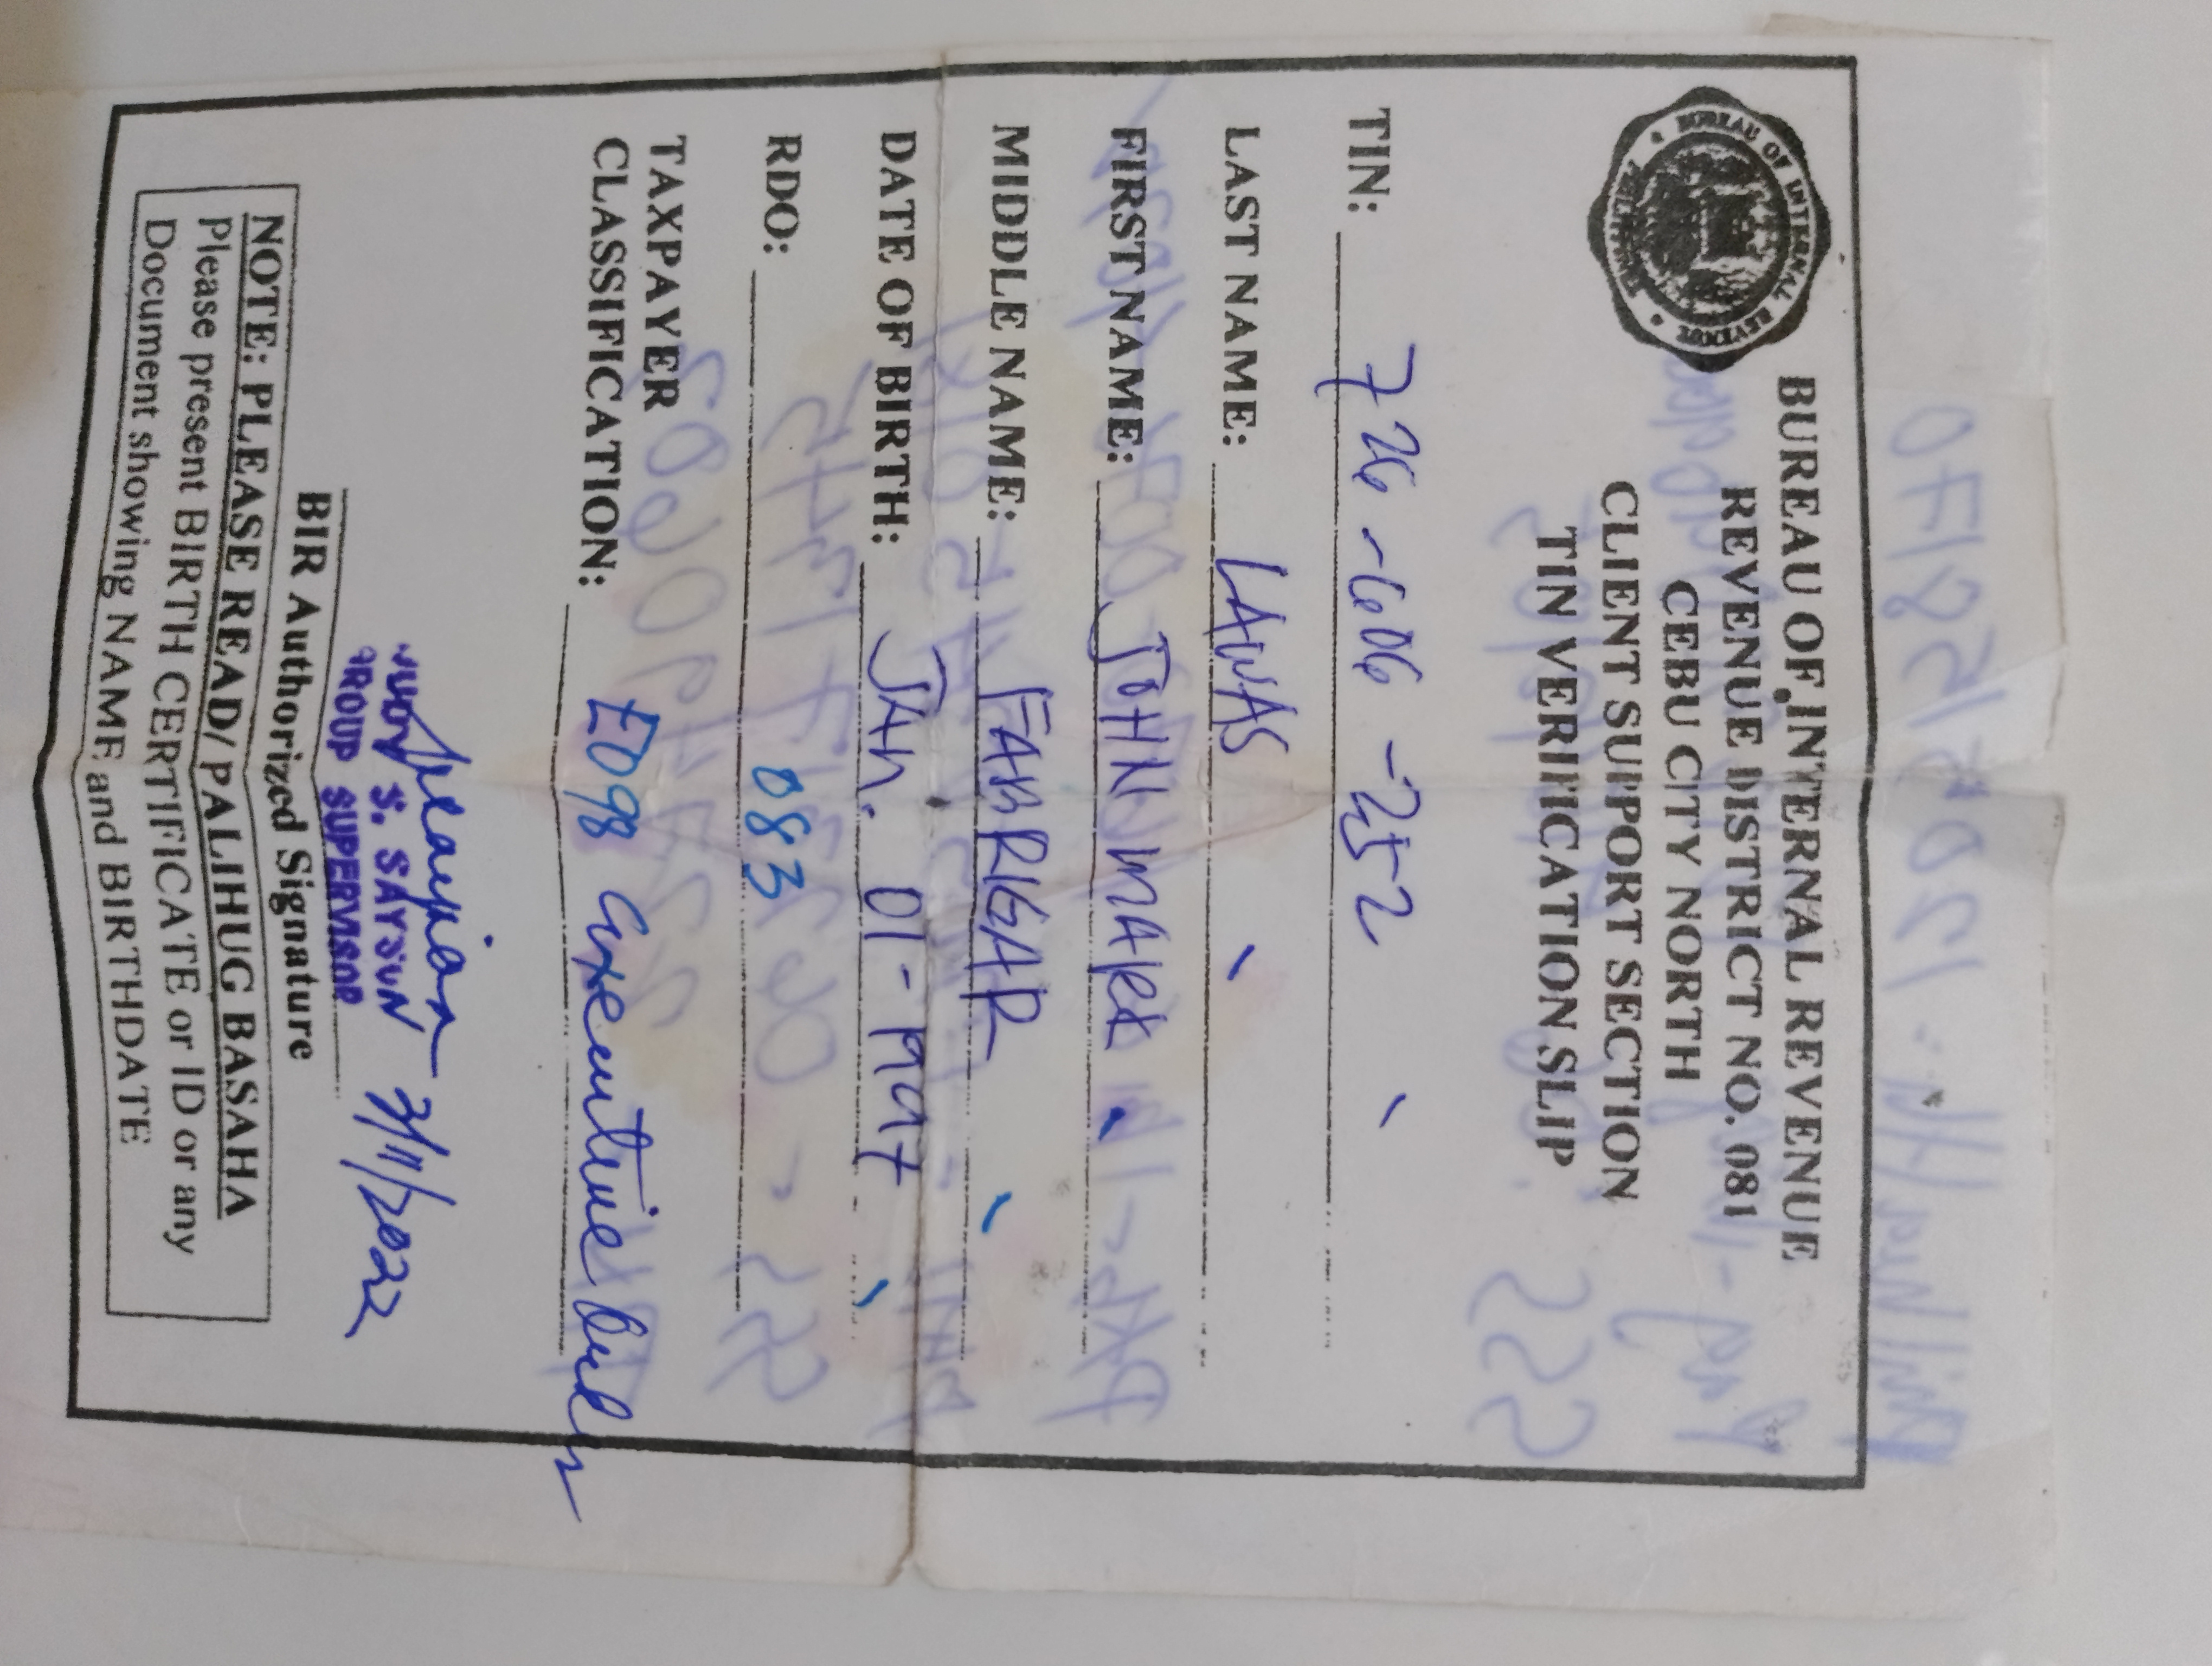 BUREAU OF INTERNAL REVENUE
REVENUE DISTRICT NO. 081
CEBU CITY NORTH
CLIENT SUPPORT SECTION
TIN VERIFICATION SLIP
TIN: 726-606-252
LAST NAME: LAWAS
FIRST NAME: JOHN MARK
MIDDLE NAME: FABRIGAR
DATE OF BIRTH: JAN. 01-1997
RDO: 083
TAXPAYER
CLASSIFICATION: EO98 Executive Order
3/11/2022
S. SAYSON
GROUP SUPERVISOR
BIR Authorized Signature
NOTE: PLEASE READ/ PALIHUG BASAHA
Please present BIRTH CERTIFICATE or ID or any
Document showing NAME and BIRTHDATE